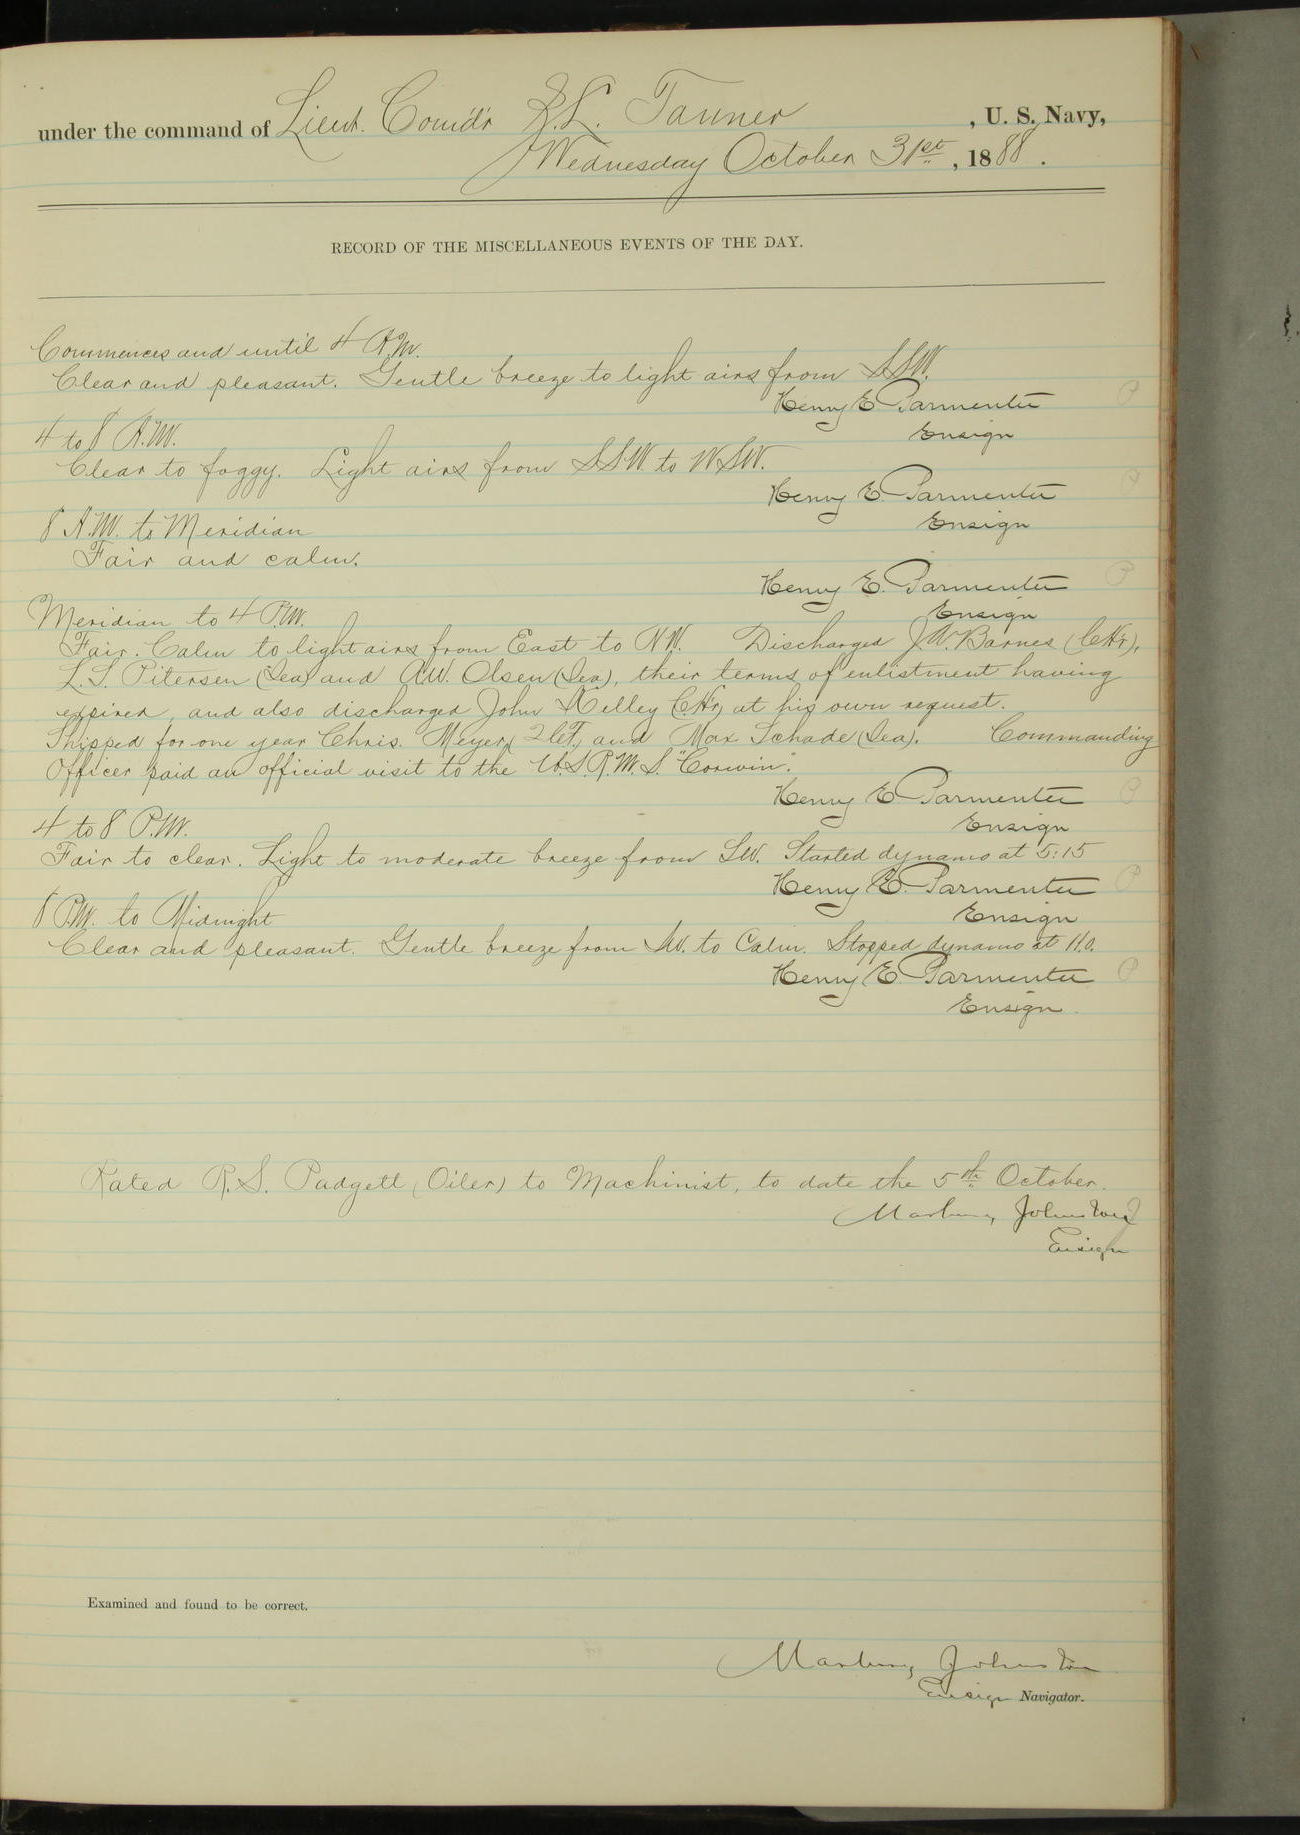 under the command of Lieut. Comd'r Z.L. Tanner, U. S. Navy,
Wednesday October 31st, 1888.
RECORD OF THE MISCELLANEOUS EVENTS OF THE DAY.
Commences and until 4 A.M.
Clear and pleasant. Gentle breeze to light airs from SSW.
Henry E. Parmenter
Ensign
4 to 8 A.M.
Clear to foggy. Light airs from SSW to WSW.
Henry E. Parmenter
Ensign
8 A.M. to Meridian
Fair and calm.
Henry E. Parmenter
Ensign
Meridian to 4 P.M.
Fair. Calm to light airs from East to NW. Discharged J.W. Barnes (C.H.),
L.S. Pitersen (Sea) and A.W. Olsen (Sea), their terms of enlistment having
expired, and also discharged John Kelley at his own request.
Shipped for one year Chris. Meyer, and Max Schade (Sea). Commanding
Officer paid an official visit to the U.S.R.M.S. "Corwin".
Henry E. Parmenter
Ensign
4 to 8 P.M.
Fair to clear. Light to moderate breeze from SW. Started dynamo at 5:15
Henry E. Parmenter
Ensign
8 P.M. to Midnight
Clear and pleasant. Gentle breeze from SW. to Calm. Stopped dynamo at 11.0.
Henry E. Parmenter
Ensign
Rated R.S. Padgett (Oiler) to Machinist, to date the 5th October.
Marbury Johnston
Ensign
Examined and found to be correct.
Marbury Johnston
Ensign Navigator.